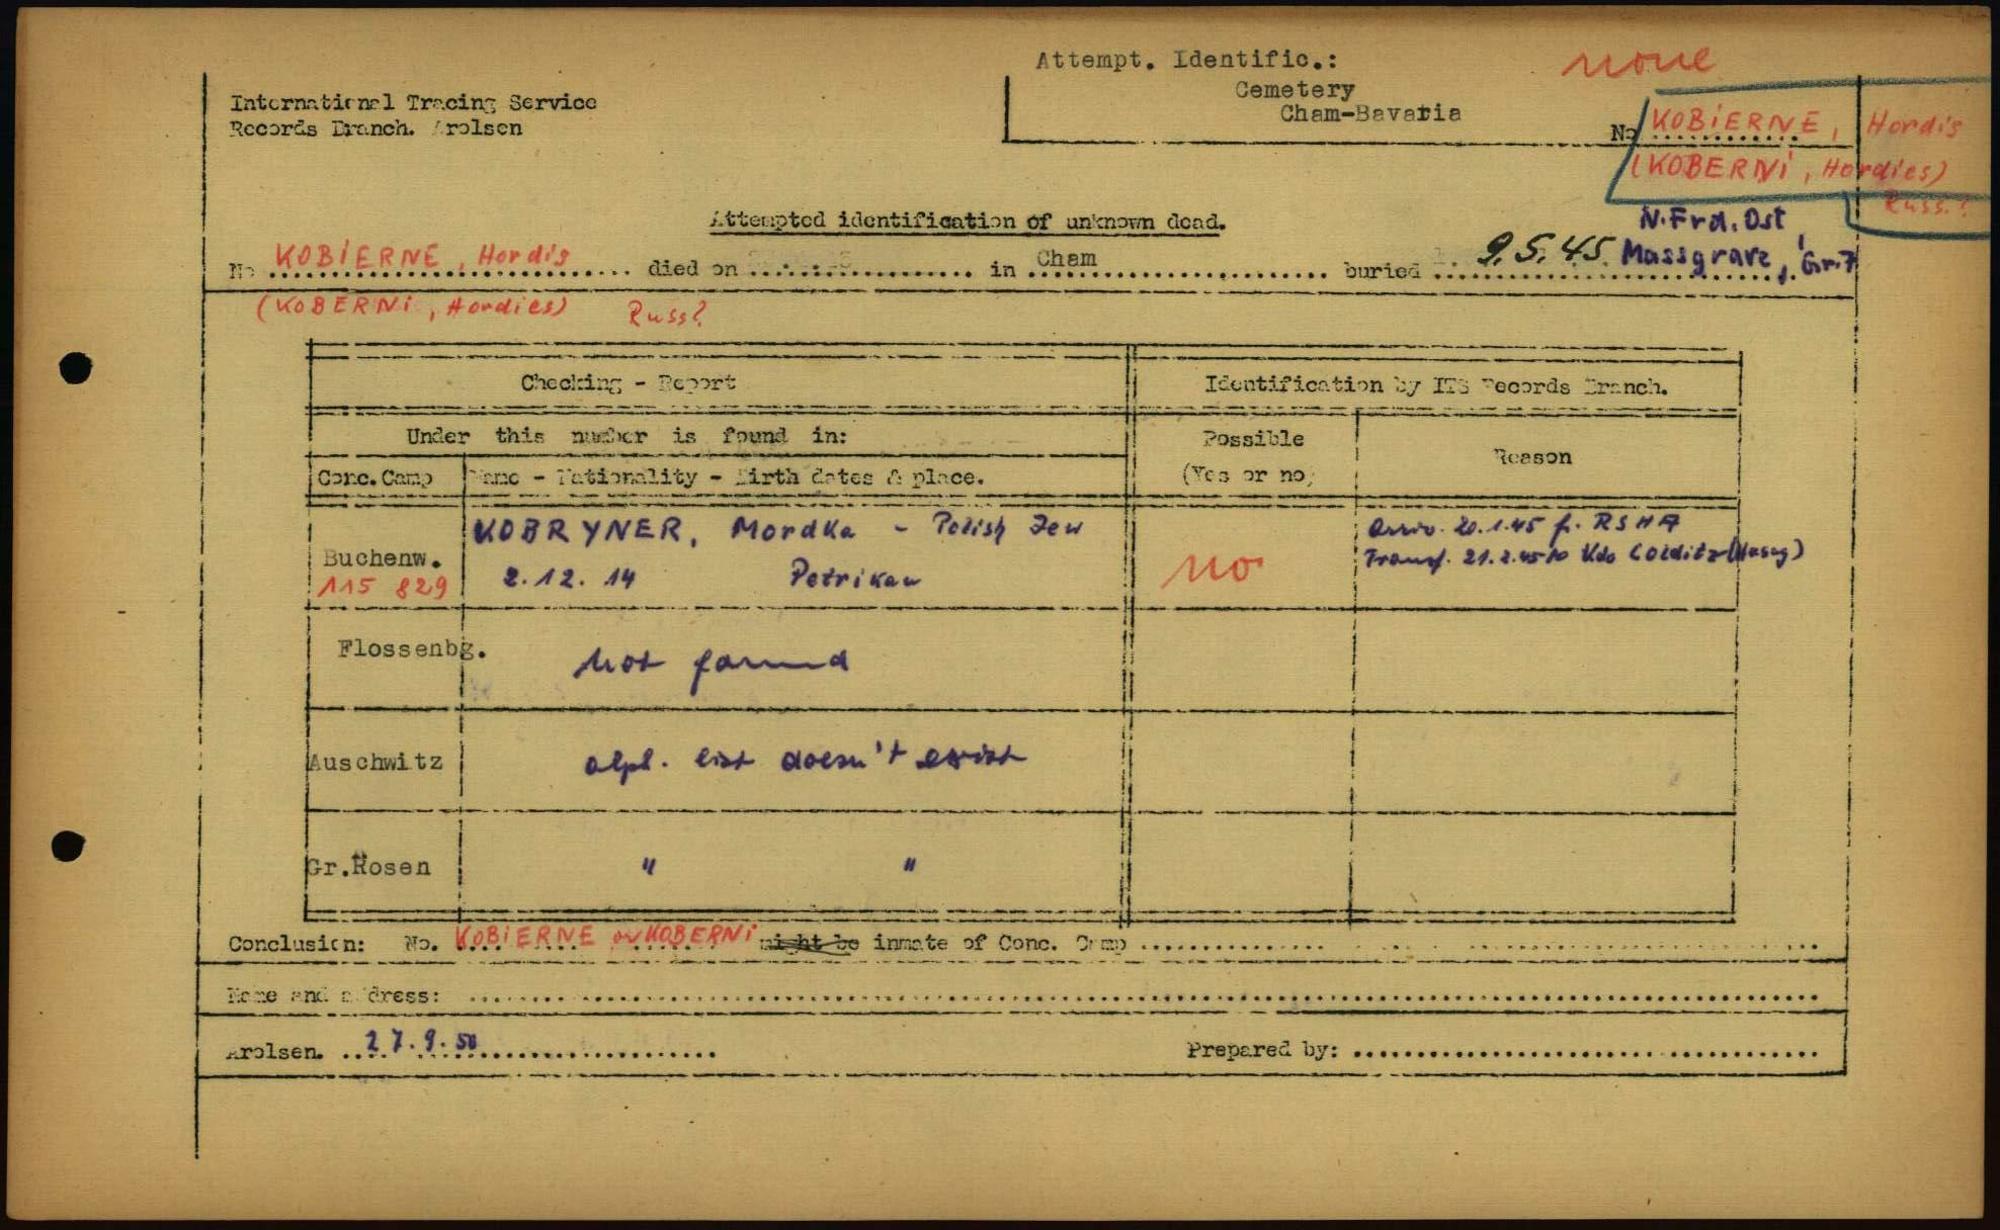 Attempt. Identific.:
none
Cemetery
Cham-Bavaria
International Tracing Service
Records Branch. Arolsen
No KOBIERNE, Hordis
(KOBERNI, Hordies)
Russ.?
Attempted identification of unknown dead.
N. Frd. Ost
No KOBIERNE, Hordis died on in Cham buried 9.5.45. Massgrave, Gr.7
(KOBERNI, Hordies) Russ?
Checking - Report
Identification by ITS Records Branch.
Under this number is found in:
Possible
(Yes or no)
Reason
Conc.Camp Name - Nationality - Birth dates & place.
Buchenw.
115 829
KOBRYNER, Mordka - Polish Jew
2.12. 14 Petrikau
no
Arriv. 20.1.45 f. RSHA
Transf. 21.2.45 to Kdo Colditz (Hasag)
Flossenbg. not found
Auschwitz alph. list doesn't exist
Gr.Rosen " "
Conclusion: No. KOBIERNE or KOBERNI might be inmate of Conc. Camp
Name and address:
Arolsen. 27.9.50
Prepared by: